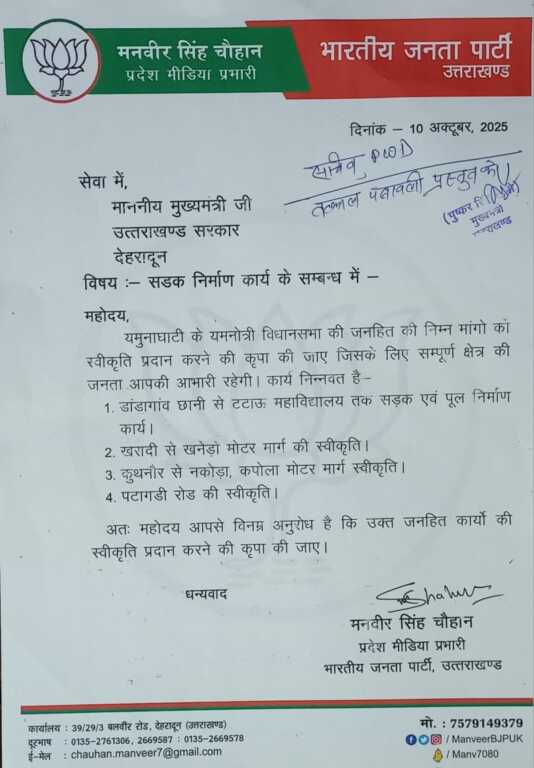 मनवीर सिंह चौहान
प्रदेश मीडिया प्रभारी
भारतीय जनता पार्टी
उत्तराखण्ड
दिनांक – 10 अक्टूबर, 2025
सचिव, PWD
तत्काल पत्रावली प्रस्तुत करें
(पुष्कर सिंह धामी)
मुख्यमंत्री
उत्तराखण्ड
सेवा में,
माननीय मुख्यमंत्री जी
उत्तराखण्ड सरकार
देहरादून
विषय :– सडक निर्माण कार्य के सम्बन्ध में –
महोदय,
यमुनाघाटी के यमनोत्री विधानसभा की जनहित की निम्न मांगो को
स्वीकृति प्रदान करने की कृपा की जाए जिसके लिए सम्पूर्ण क्षेत्र की
जनता आपकी आभारी रहेगी। कार्य निन्नवत है–
1. डांडागांव छानी से टटाऊ महाविधालय तक सड़क एवं पूल निर्माण
कार्य।
2. खरादी से खनेड़ा मोटर मार्ग की स्वीकृति।
3. कुथनौर से नकोड़ा, कपोला मोटर मार्ग स्वीकृति।
4. पटागडी रोड की स्वीकृति।
अतः महोदय आपसे विनम्र अनुरोध है कि उक्त जनहित कार्यो की
स्वीकृति प्रदान करने की कृपा की जाए।
धन्यवाद
मनवीर सिंह चौहान
प्रदेश मीडिया प्रभारी
भारतीय जनता पार्टी, उत्तराखण्ड
कार्यालय : 39/29/3 बलवीर रोड, देहरादून (उत्तराखण्ड)
दूरभाष : 0135-2761306, 2669587 : 0135-2669578
ई-मेल : chauhan.manveer7@gmail.com
मो. : 7579149379
/ ManveerBJPUK
/ Manv7080